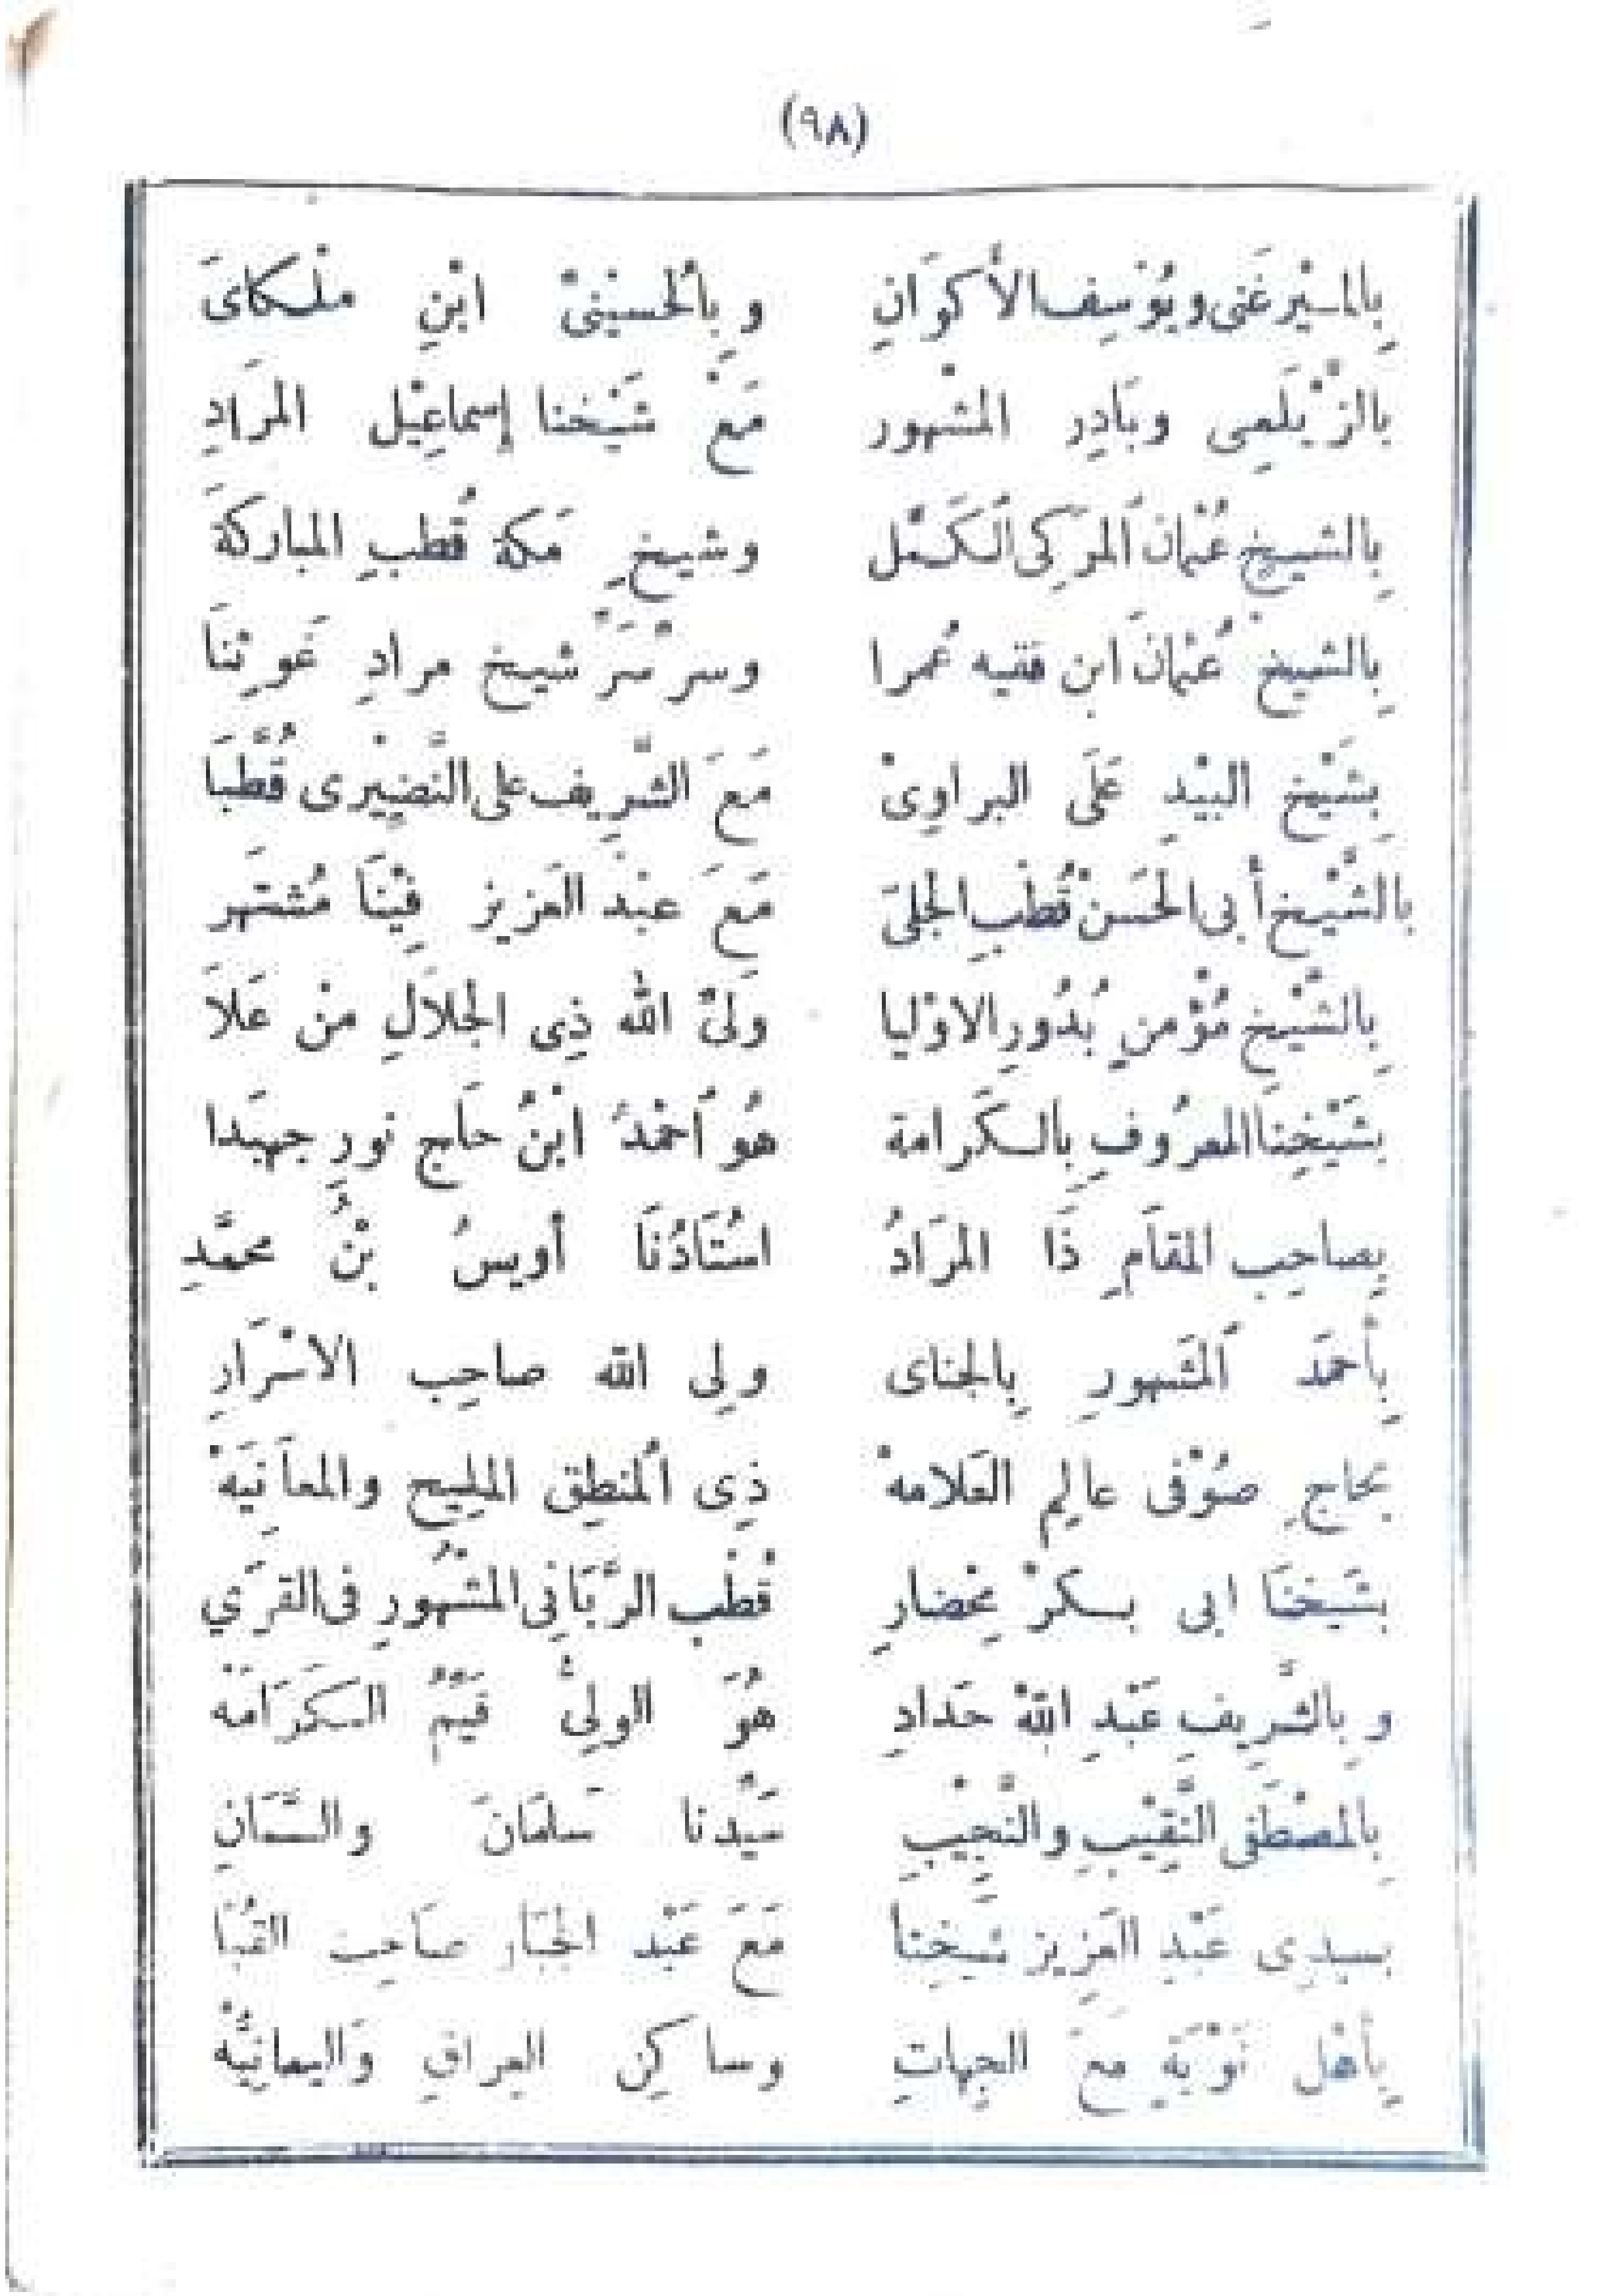 (٩٨)
بِالمِيْرغَنى ويُوْسِف الأكوَانِ وبِالْحسيْنىْ ابْنِ ملْكاىَ
بالزَّيْلَعِى وبَادِر المشْهور مَعْ شَيْخنا إسماعِيْل المرَادِ
بِالشيخ عُثمانَ المرَكى الْكَمَّل وشيخِ مَكة قُطبِ المباركةَ
بِالشيخْ عُثمانَ ابن فقيه عُمرا وسرْ سَرَّ شيخ مرادِ غَوثِنَا
بِشَيْخ البيْدِ عَلَى البراوِىْ مَعَ الشَّرِيف على النَّضِيْرى قُطْبَا
بالشَّيْخ أبى الحَسَنْ قُطْبِ الجلىَ مَعَ عبْدَ العَزيز فِيْنَا مُشتَهر
بِالشَّيْخِ مُؤْمنٍ بُدُورِ الاوْليا وَلىْ الله ذِى الجلاَلِ منْ عَلاَ
بشَيْخِنَا المعرُوفِ بِالكَرامة هُو أحْمَدُ ابْنُ حَاج نورٍ جهبَدا
بِصاحِبِ المقاَمِ ذَا المرَادُ اسْتَاذُنَا أويسُ بْنُ محمَّدِ
بِأحمَد المَشهورِ بِالجناى ولِى الله صاحِب الاسْرَارِ
بحاجِ صُوْفى عالِم العَلامهْ ذِى المنطِق المليح والمعاَنِيَهْ
بشَيخنَا ابى بكرْ مِحْضارِ قُطْب الرَّبَانِى المشْهُورِ فى القرَىٰ
وبِالشَّرِيفِ عَبْدِ اللهْ حَدادِ هُوَ الولِىُّ قَيّمُ الكَرَامَهْ
بِالمصْطَفى النَّقِيْبِ والنَّجِيْبِ سَيّدنا سَلمَانَ والسَّمَانِ
بسيدِى عَبْدِ العَزِيز شَيخِنَا مَعَ عَبْد الجبَار صَاحِب القُبَا
بِأهْل نَوْبَةٍ مَعَ الجِهاتِ وساكِن العِراقِ وَاليمانِيَّهْ